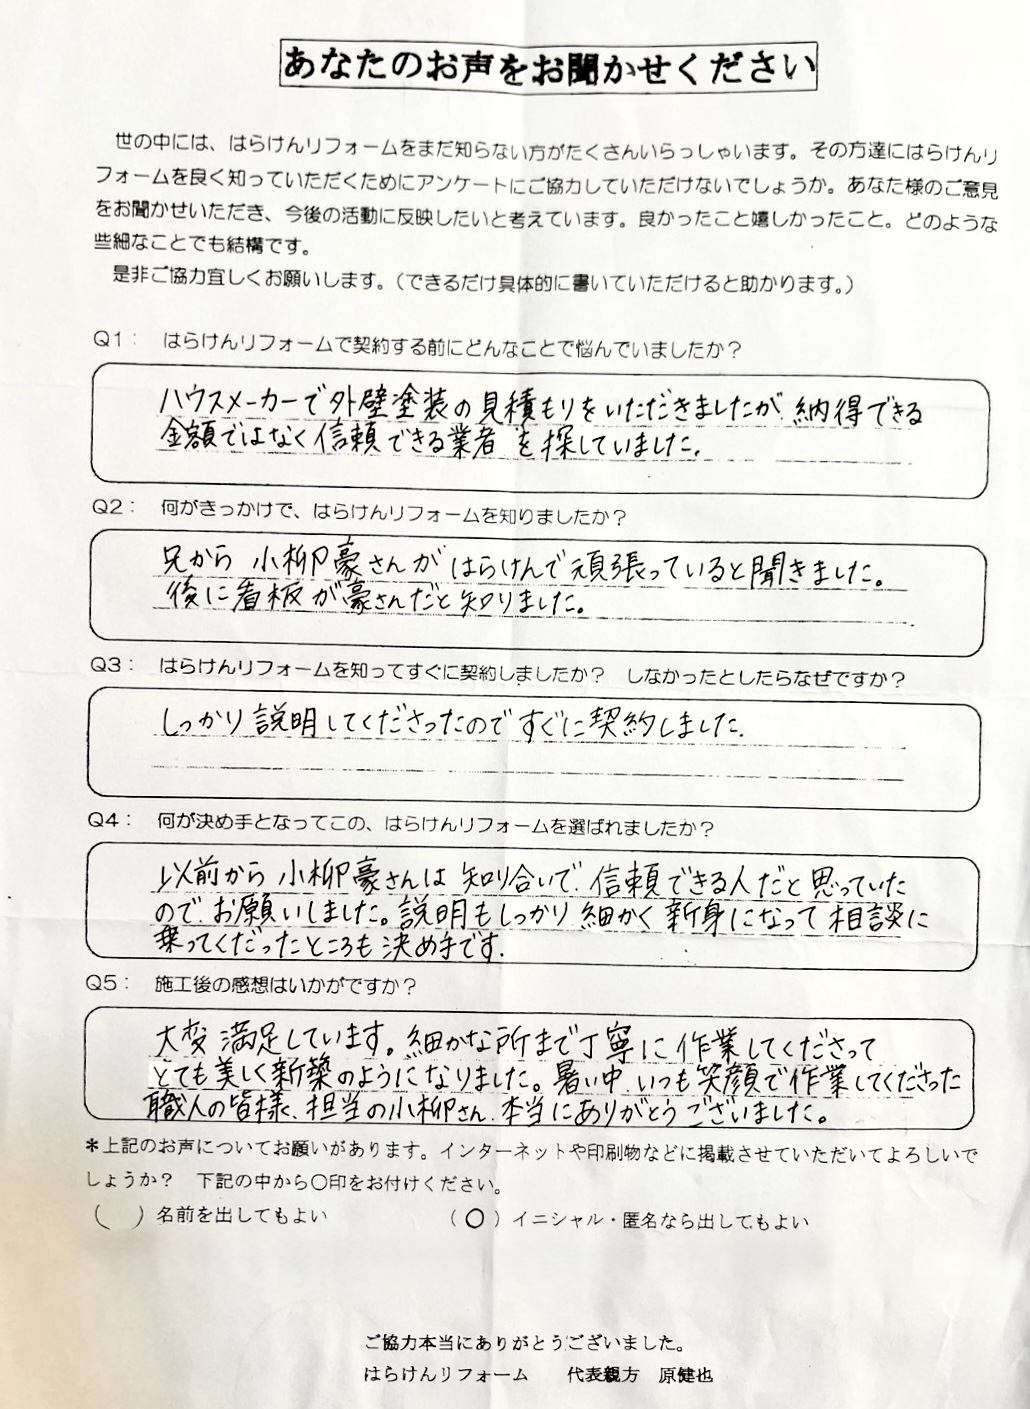 あなたのお声をお聞かせください
世の中には、はらけんリフォームをまだ知らない方がたくさんいらっしゃいます。その方達にはらけんリ
フォームを良く知っていただくためにアンケートにご協力していただけないでしょうか。あなた様のご意見
をお聞かせいただき、今後の活動に反映したいと考えています。良かったこと嬉しかったこと。どのような
些細なことでも結構です。
是非ご協力宜しくお願いします。（できるだけ具体的に書いていただけると助かります。）
Q1： はらけんリフォームで契約する前にどんなことで悩んでいましたか？
ハウスメーカーで外壁塗装の見積もりをいただきましたが、納得できる
金額ではなく信頼できる業者を探していました。
Q2： 何がきっかけで、はらけんリフォームを知りましたか？
兄から小柳豪さんがはらけんで頑張っていると聞きました。
後に看板が豪さんだと知りました。
Q3： はらけんリフォームを知ってすぐに契約しましたか？ しなかったとしたらなぜですか？
しっかり説明してくださったのですぐに契約しました。
Q4： 何が決め手となってこの、はらけんリフォームを選ばれましたか？
以前から小柳豪さんは知り合いで、信頼できる人だと思っていた
ので、お願いしました。説明もしっかり細かく新身になって相談に
乗ってくだったところも決め手です。
Q5： 施工後の感想はいかがですか？
大変満足しています。細かな所まで丁寧に作業してくださって
とても美しく新築のようになりました。暑い中、いつも笑顔で作業してくださった
職人の皆様、担当の小柳さん、本当にありがとうございました。
＊上記のお声についてお願いがあります。インターネットや印刷物などに掲載させていただいてよろしいで
しょうか？ 下記の中から〇印をお付けください。
（ ）名前を出してもよい （〇）イニシャル・匿名なら出してもよい
ご協力本当にありがとうございました。
はらけんリフォーム 代表親方 原健也